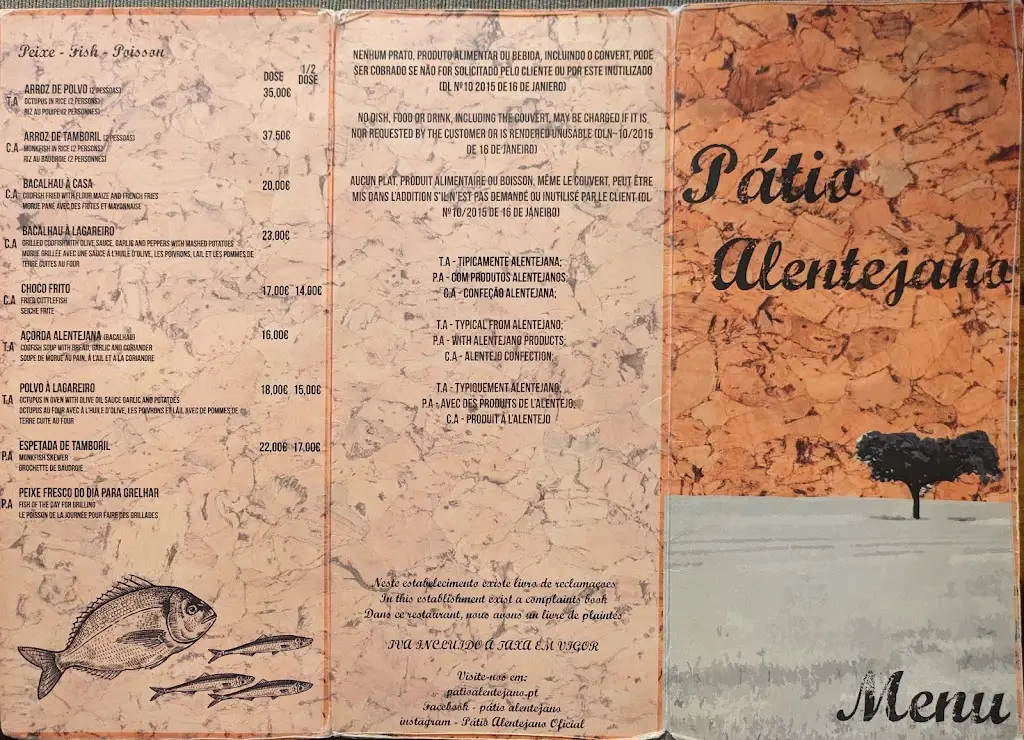 Peixe - Fish - Poisson
DOSE 1/2 DOSE
ARROZ DE POLVO (2 PESSOAS) 35,00€
T.A OCTOPUS IN RICE (2 PERSONS)
RIZ AU POULPE(2 PERSONNES)
ARROZ DE TAMBORIL (2 PESSOAS) 37,50€
C.A MONKFISH IN RICE (2 PERSONS)
RIZ AU BAUDROIE (2 PERSONNES)
BACALHAU À CASA 20,00€
C.A CODFISH FRIED WITH FLOUR MAIZE AND FRENCH FRIES
MORUE PANÉ AVEC DES FRITES ET MAYONNAISE
BACALHAU À LAGAREIRO 23,00€
C.A GRILLED CODFISH WITH OLIVE SAUCE, GARLIC AND PEPPERS WITH MASHED POTATOES
MORUE GRILLÉE AVEC UNE SAUCE À L'HUILE D'OLIVE, LES POIVRONS, L'AIL ET LES POMMES DE
TERRE CUITES AU FOUR
CHOCO FRITO 17,00€ 14,00€
C.A FRIED CUTTLEFISH
SEICHE FRITE
AÇORDA ALENTEJANA (BACALHAU) 16,00€
T.A CODFISH SOUP WITH BREAD, GARLIC AND CORIANDER
SOUPE DE MORUE AU PAIN, À L'AIL ET A LA CORIANDRE
POLVO À LAGAREIRO 18,00€ 15,00€
T.A OCTOPUS IN OVEN WITH OLIVE OIL SAUCE GARLIC AND POTATOES
OCTOPUS AU FOUR AVEC À L'HUILE D'OLIVE, LES POIVRONS ET L'AIL AVEC DE POMMES DE
TERRE CUITE AU FOUR
ESPETADA DE TAMBORIL 22,00€ 17,00€
P.A MONKFISH SKEWER
BROCHETTE DE BAUDROIE
PEIXE FRESCO DO DIA PARA GRELHAR
P.A FISH OF THE DAY FOR GRILLING
LE POISSON DE LA JOURNÉE POUR FAIRE DES GRILLADES
NENHUM PRATO, PRODUTO ALIMENTAR OU BEBIDA, INCLUINDO O CONVERT, PODE
SER COBRADO SE NÃO FOR SOLICITADO PELO CLIENTE OU POR ESTE INUTILIZADO
(DL Nº10 2015 DE16 DE JANIERO)
NO DISH, FOOD OR DRINK, INCLUDING THE COUVERT, MAY BE CHARGED IF IT IS
NOR REQUESTED BY THE CUSTOMER OR IS RENDERED UNUSABLE (DLN~10/2015
DE 16 DE JANEIRO)
AUCUN PLAT, PRODUIT ALIMENTAIRE OU BOISSON, MÊME LE COUVERT, PEUT ÊTRE
MIS DANS L'ADDITION S'IL N'EST PAS DEMANDÉ OU INUTILISÉ PAR LE CLIENT (DL
Nº10/2015 DE 16 DE JANEIRO)
T.A - TIPICAMENTE ALENTEJANA;
P.A - COM PRODUTOS ALENTEJANOS;
C.A - CONFEÇÃO ALENTEJANA;
T.A - TYPICAL FROM ALENTEJO;
P.A - WITH ALENTEJANO PRODUCTS;
C.A - ALENTEJO CONFECTION;
T.A - TYPIQUEMENT ALENTEJANO;
P.A - AVEC DES PRODUITS DE L'ALENTEJO;
C.A - PRODUIT À L'ALENTEJO
Neste estabelecimento existe livro de reclamaçoes
In this establishment exist a complaints book
Dans ce restaurant, nous avons un livre de plaintes
IVA INCLUIDO À TAXA EM VIGOR
Visite-nos em:
patioalentejano.pt
Facebook - pátio alentejano
instagram - Pátio Alentejano Oficial
Pátio
Alentejano
Menu